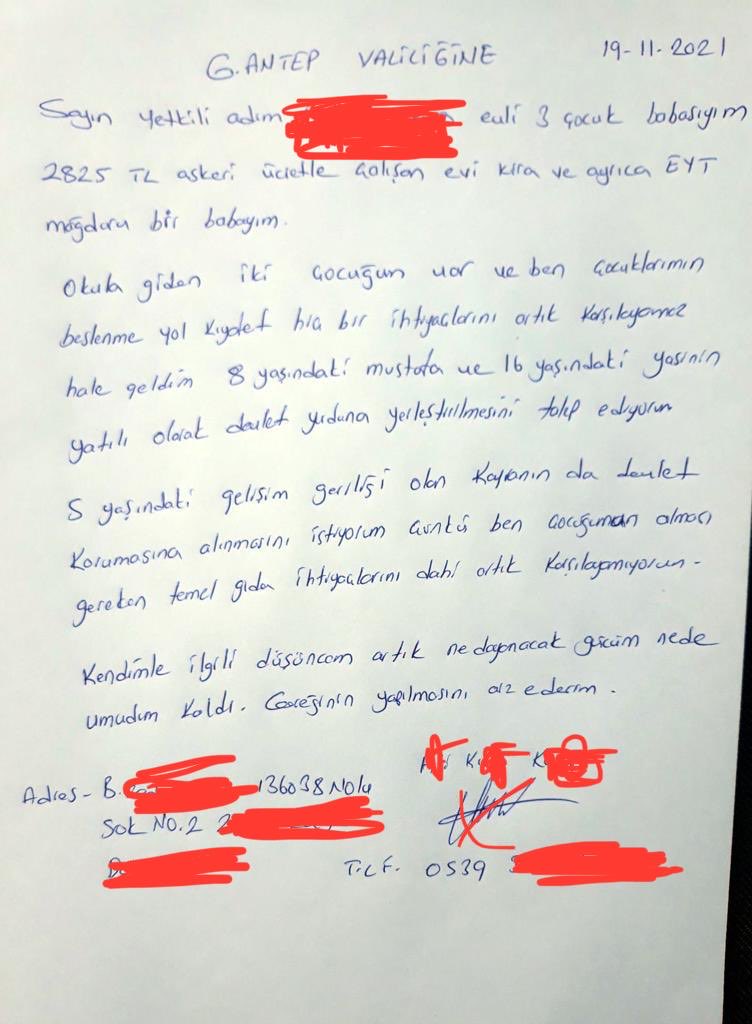 G.ANTEP VALİLİĞİNE 19-11-2021
Sayın yetkili adım evli 3 çocuk babasıyım
2825 TL askeri ücretle çalışan evi kira ve ayrıca EYT
mağduru bir babayım.
Okula giden iki çocuğum var ve ben çocuklarımın
beslenme yol kıyafet hiç bir ihtiyaçlarını artık karşılayamaz
hale geldim 8 yaşındaki mustafa ve 16 yaşındaki yasinin
yatılı olarak devlet yurduna yerleştirilmesini talep ediyorum
5 yaşındaki gelişim geriliği olan Kayranın da devlet
korumasına alınmasını istiyorum çünkü ben çocuğumun alması
gereken temel gıda ihtiyaçlarını dahi artık karşılayamıyorum-
Kendimle ilgili düşüncem artık ne dayanacak gücüm nede
umudum kaldı. Gereğinin yapılmasını arz ederim.
Adres- B. 136038 Nolu
Sok No.2
TLF. 0539